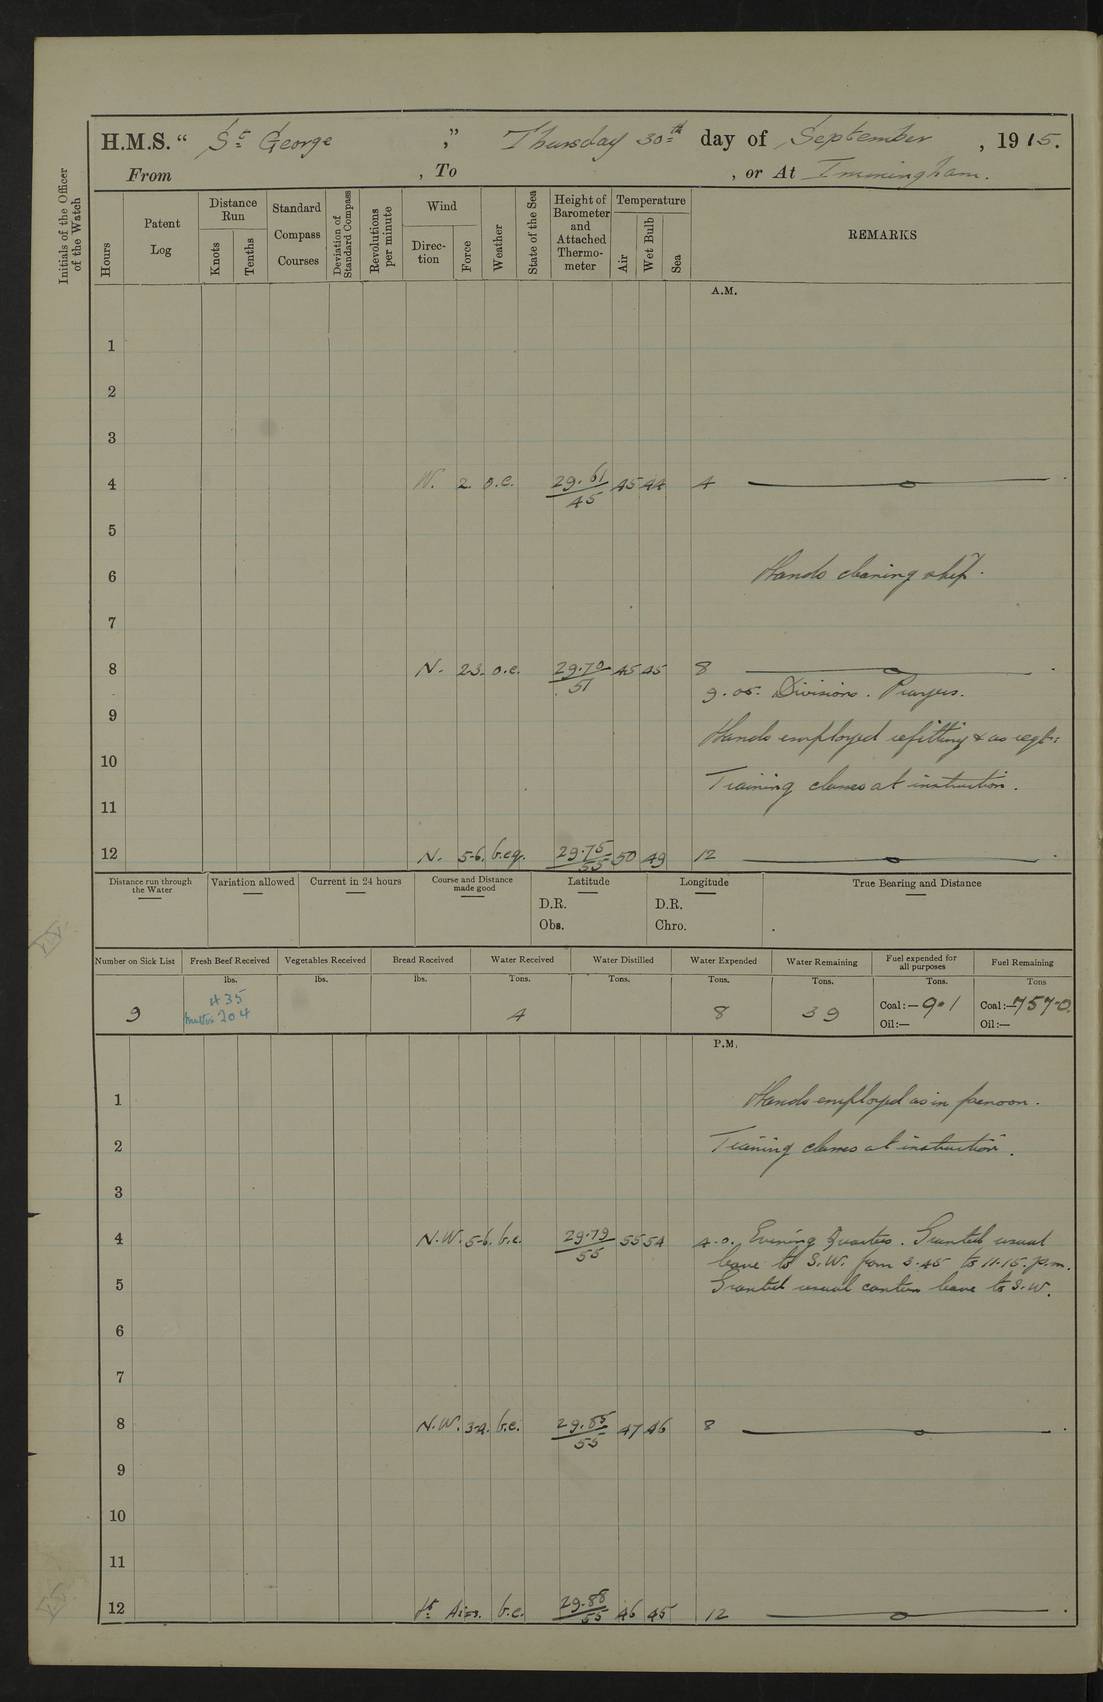 H.M.S. “ St George ,” Thursday 30th day of September , 1915.
From , To , or At Immingham.
Initials of the Officer of the Watch
Hours
Patent Log
Distance Run
Knots
Tenths
Standard Compass Courses
Deviation of Standard Compass
Revolutions per minute
Wind
Direction
Force
Weather
State of the Sea
Height of Barometer and Attached Thermometer
Temperature
Air
Wet Bulb
Sea
REMARKS
A.M.
1
2
3
4 W. 2. o.c. 29.61/45 45 44 4
5
6 Hands cleaning ship.
7
8 N. 2-3. o.c. 29.70/51 45 45 8
9.05. Divisions. Prayers.
9
Hands employed refitting & as reqt:
10
Training classes at instruction.
11
12 N. 5-6. b.c.q. 29.75/55 50 49 12
Distance run through the Water
Variation allowed
Current in 24 hours
Course and Distance made good
Latitude
D.R.
Obs.
Longitude
D.R.
Chro.
True Bearing and Distance
Number on Sick List Fresh Beef Received Vegetables Received Bread Received Water Received Water Distilled Water Expended Water Remaining Fuel expended for all purposes Fuel Remaining
lbs. lbs. lbs. Tons. Tons. Tons. Tons. Tons. Tons
435
9 204 4 8 39 Coal:— 9.1 Coal:— 757.0.
Oil:— Oil:—
P.M.
1 Hands employed as in forenoon.
2 Training classes at instruction.
3
4 N.W. 5-6. b.c. 29.79/55 55 54 4.0. Evening Quarters. Granted usual
leave to S.W. from 3.45 to 11.15. p.m.
5 Granted usual canteen leave to S.W.
6
7
8 N.W. 3-4. b.c. 29.85/55 47 46 8
9
10
11
12 Lt Airs. b.c. 29.88/55 46 45 12